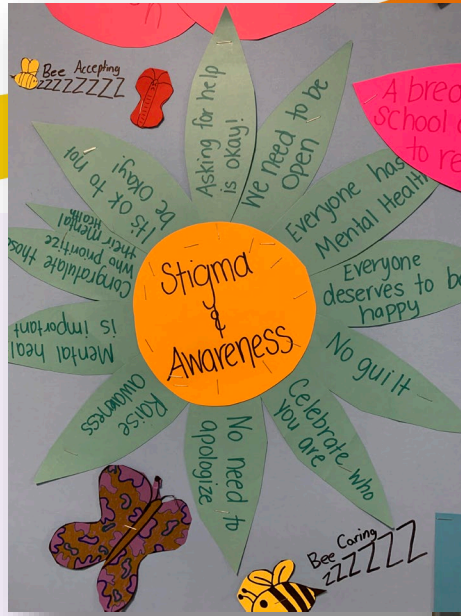 Bee Accepting
zzzzzzzz
Stigma
&
Awareness
Asking for help
is okay!
We need to be
Open
Everyone has
Mental Health
Everyone
deserves to be
happy
No guilt
Celebrate who
you are
No need to
apologize
Raise
awareness
Mental heal
is important
Congratulate those
who prioritize
their mental
health
It's ok to not
be okay!
A brea
school
to re
Bee Caring
zzzzzzz